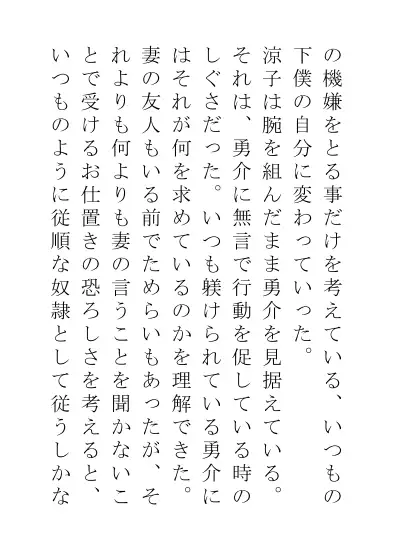 の機嫌をとる事だけを考えている、いつもの
下僕の自分に変わっていった。
涼子は腕を組んだまま勇介を見据えている。
それは、勇介に無言で行動を促している時の
しぐさだった。いつも躾けられている勇介に
はそれが何を求めているのかを理解できた。
妻の友人もいる前でためらいもあったが、そ
れよりも何よりも妻の言うことを聞かないこ
とで受けるお仕置きの恐ろしさを考えると、
いつものように従順な奴隷として従うしかな